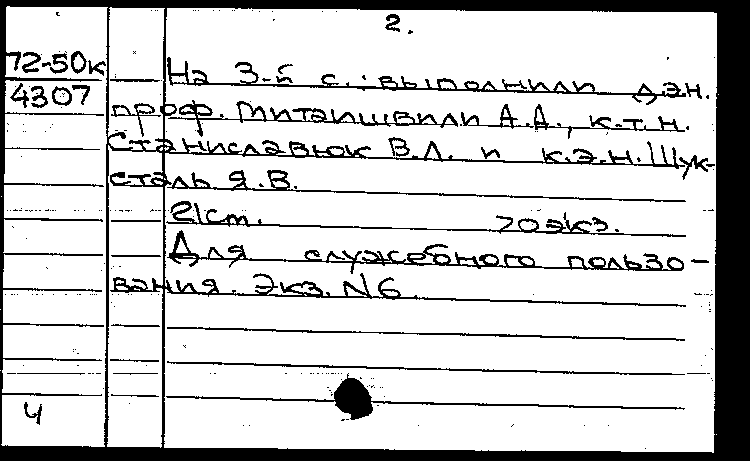 2.
72-50к
4307
На 3-й с.: выполнили д.эн.
проф. Митаишвили А.А., к.т.н.
Станиславюк В.Л. и к.э.н. Шук-
сталь Я.В.
21 ст. 70 экз.
Для служебного пользо-
вания. Экз. N6.
4